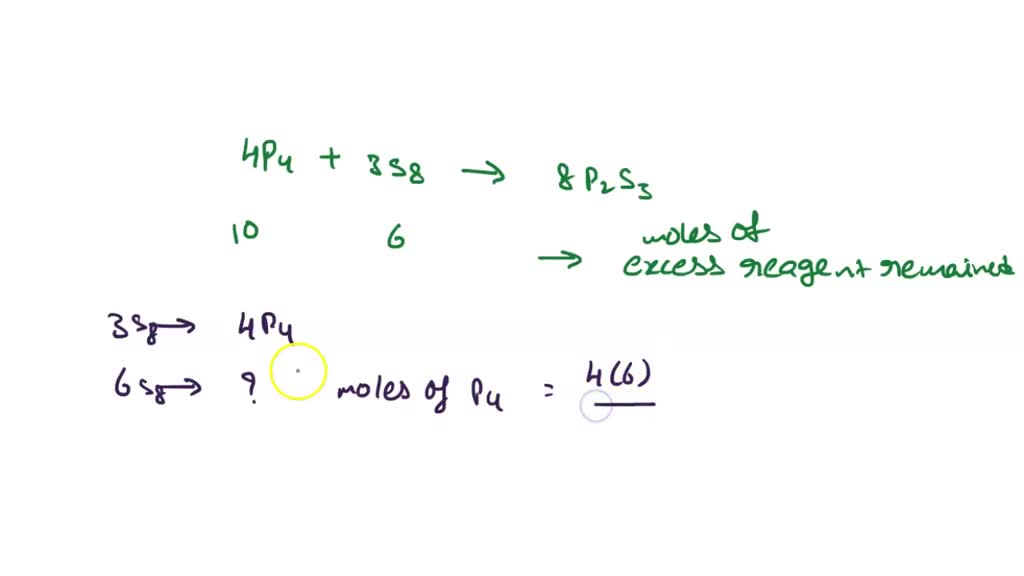 4P4 + 3S8 → 8P2S3
10 6 → moles of
excess reagent remained
3S8 → 4P4
6S8 → ? moles of P4 = 4(6)